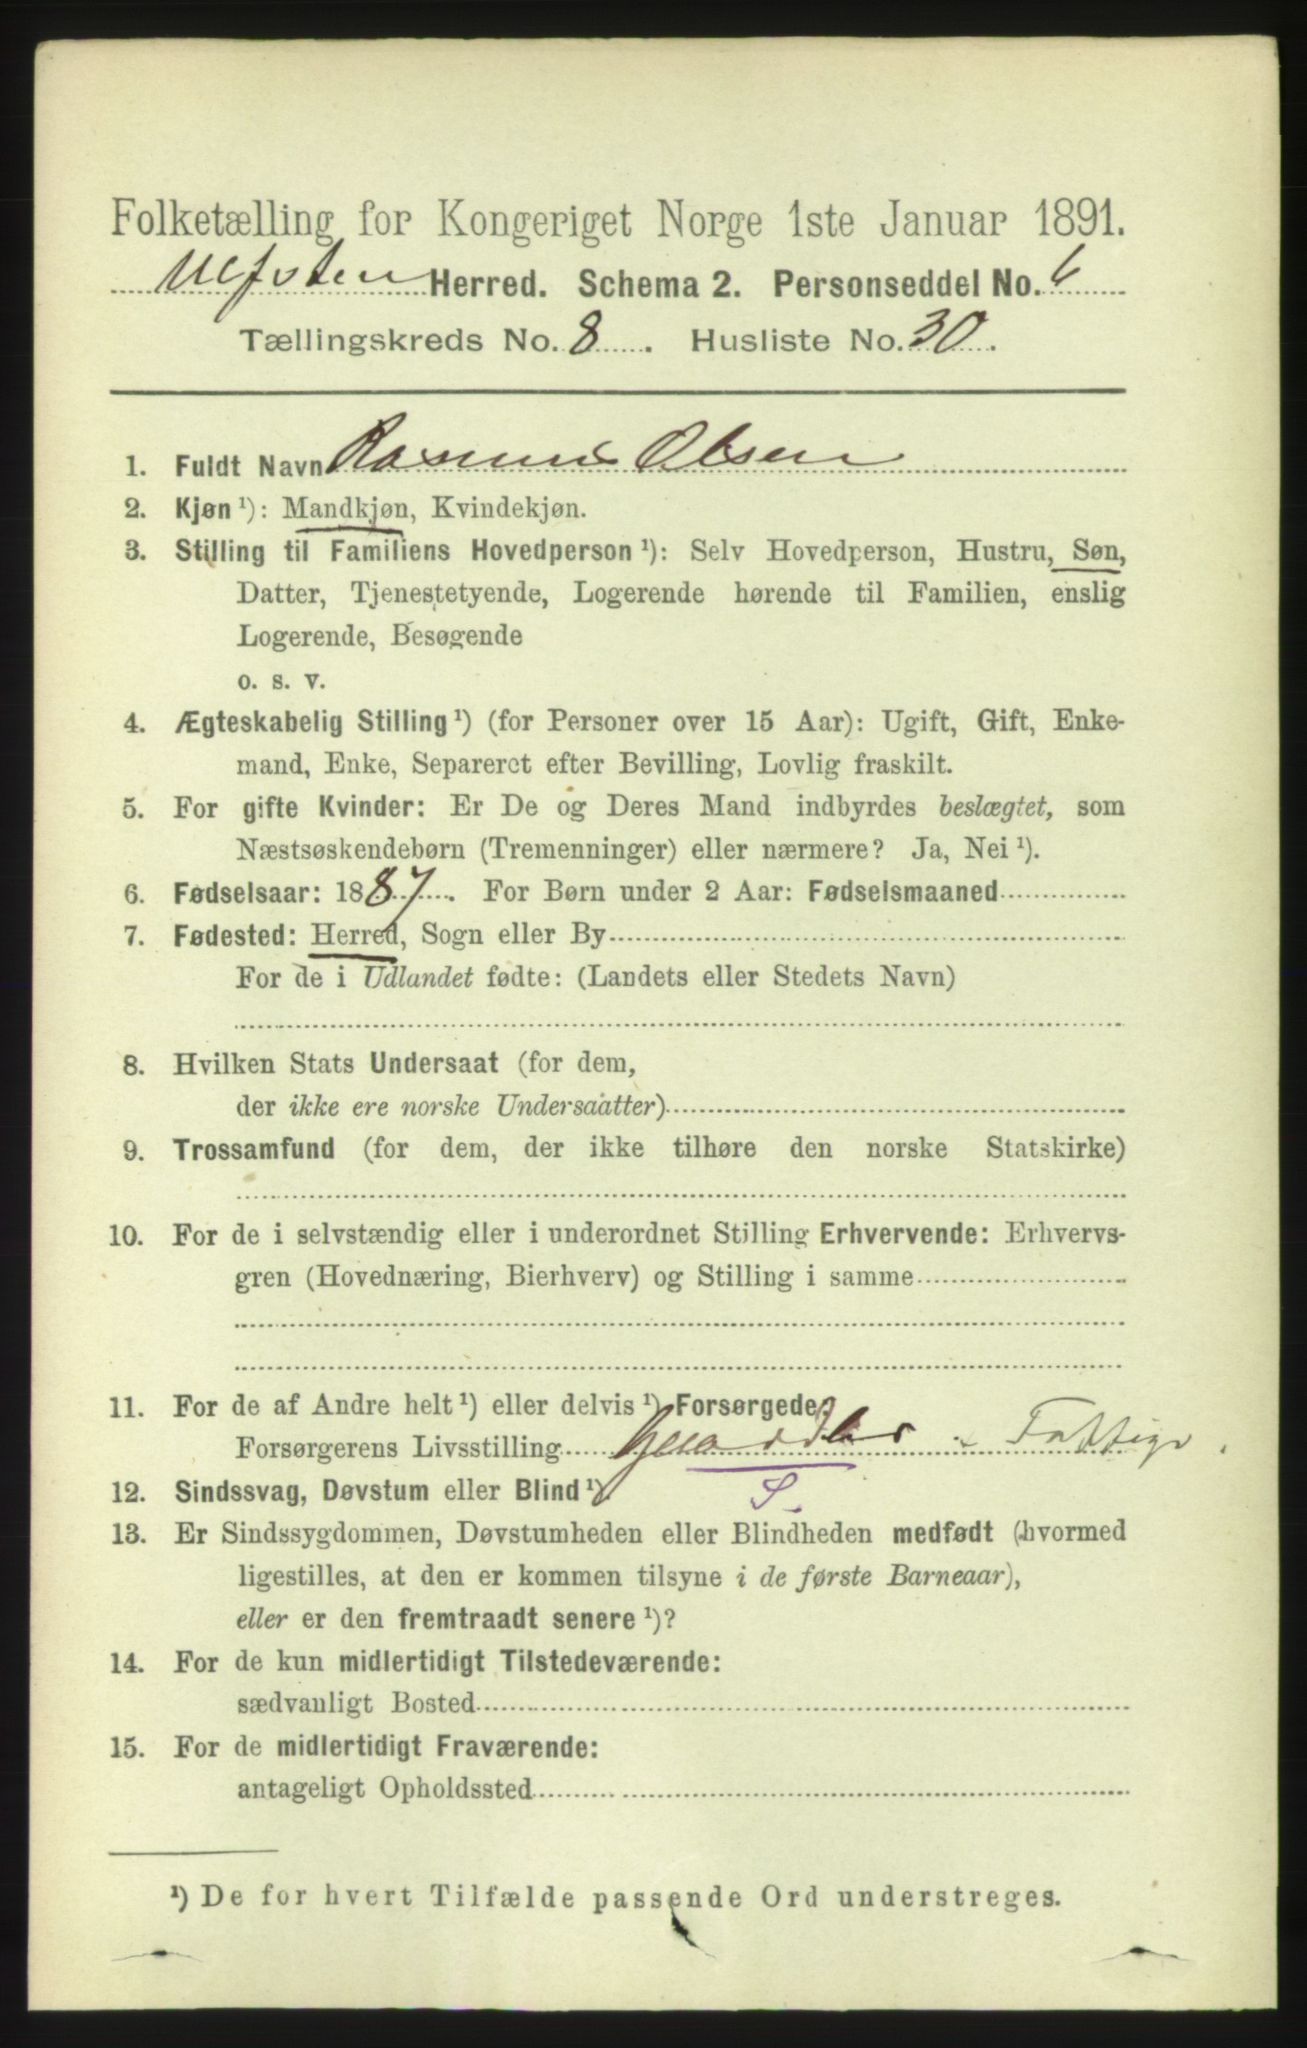 Folketælling for Kongeriget Norge 1ste Januar 1891.
Ulfsten Herred. Schema 2. Personseddel No. 6
Tællingskreds No. 8. Husliste No. 30.
1. Fuldt Navn Rasmus Olsen
2. Kjøn ¹): Mandkjøn, Kvindekjøn.
3. Stilling til Familiens Hovedperson ¹): Selv Hovedperson, Hustru, Søn,
Datter, Tjenestetyende, Logerende hørende til Familien, enslig
Logerende, Besøgende
o. s. v.
4. Ægteskabelig Stilling ¹) (for Personer over 15 Aar): Ugift, Gift, Enke-
mand, Enke, Separeret efter Bevilling, Lovlig fraskilt.
5. For gifte Kvinder: Er De og Deres Mand indbyrdes beslægtet, som
Næstsøskendebørn (Tremenninger) eller nærmere? Ja, Nei ¹).
6. Fødselsaar: 1887. For Børn under 2 Aar: Fødselsmaaned
7. Fødested: Herred, Sogn eller By
For de i Udlandet fødte: (Landets eller Stedets Navn)
8. Hvilken Stats Undersaat (for dem,
der ikke ere norske Undersaatter)
9. Trossamfund (for dem, der ikke tilhøre den norske Statskirke)
10. For de i selvstændig eller i underordnet Stilling Erhvervende: Erhvervs-
gren (Hovednæring, Bierhverv) og Stilling i samme
11. For de af Andre helt ¹) eller delvis ¹) Forsørgede:
Forsørgerens Livsstilling
12. Sindssvag, Døvstum eller Blind ¹). S.
13. Er Sindssygdommen, Døvstumheden eller Blindheden medfødt (hvormed
ligestilles, at den er kommen tilsyne i de første Barneaar),
eller er den fremtraadt senere ¹)?
14. For de kun midlertidigt Tilstedeværende:
sædvanligt Bosted
15. For de midlertidigt Fraværende:
antageligt Opholdssted
¹) De for hvert Tilfælde passende Ord understreges.